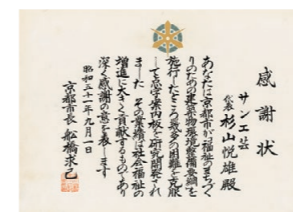 感謝状
サン工芸
代表 杉山悦雄殿
あなたは京都市が福祉のまちづく
りのための建築物環境整備要綱を
施行したところ幾多の困難を克服
して点字案内板を研究開発され
ました その業績は社会福祉の
増進に大きく貢献するものであり
深く感謝の意を表します
昭和五十一年九月一日
京都市長 舩橋求己